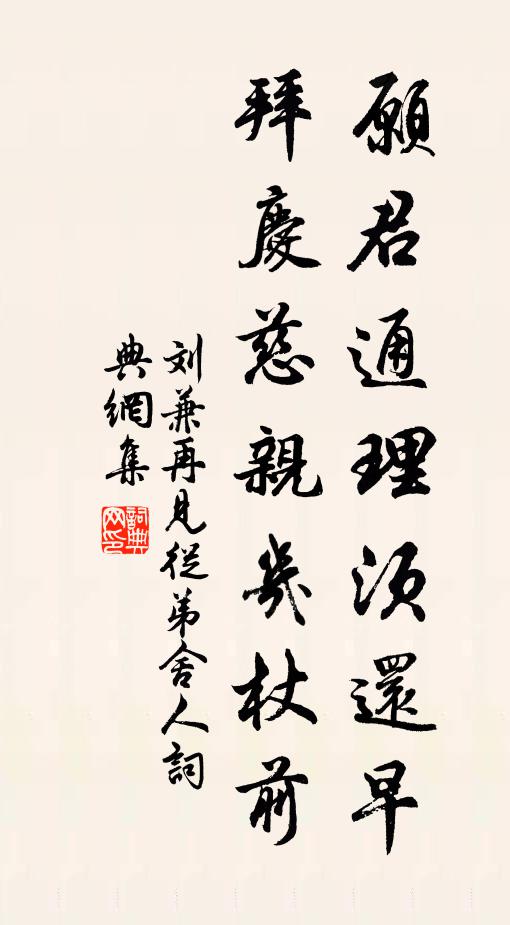 願君通理须還早
拜慶慈親幾杖前
刘兼再見從弟舍人詞
典網集
詞典
网印